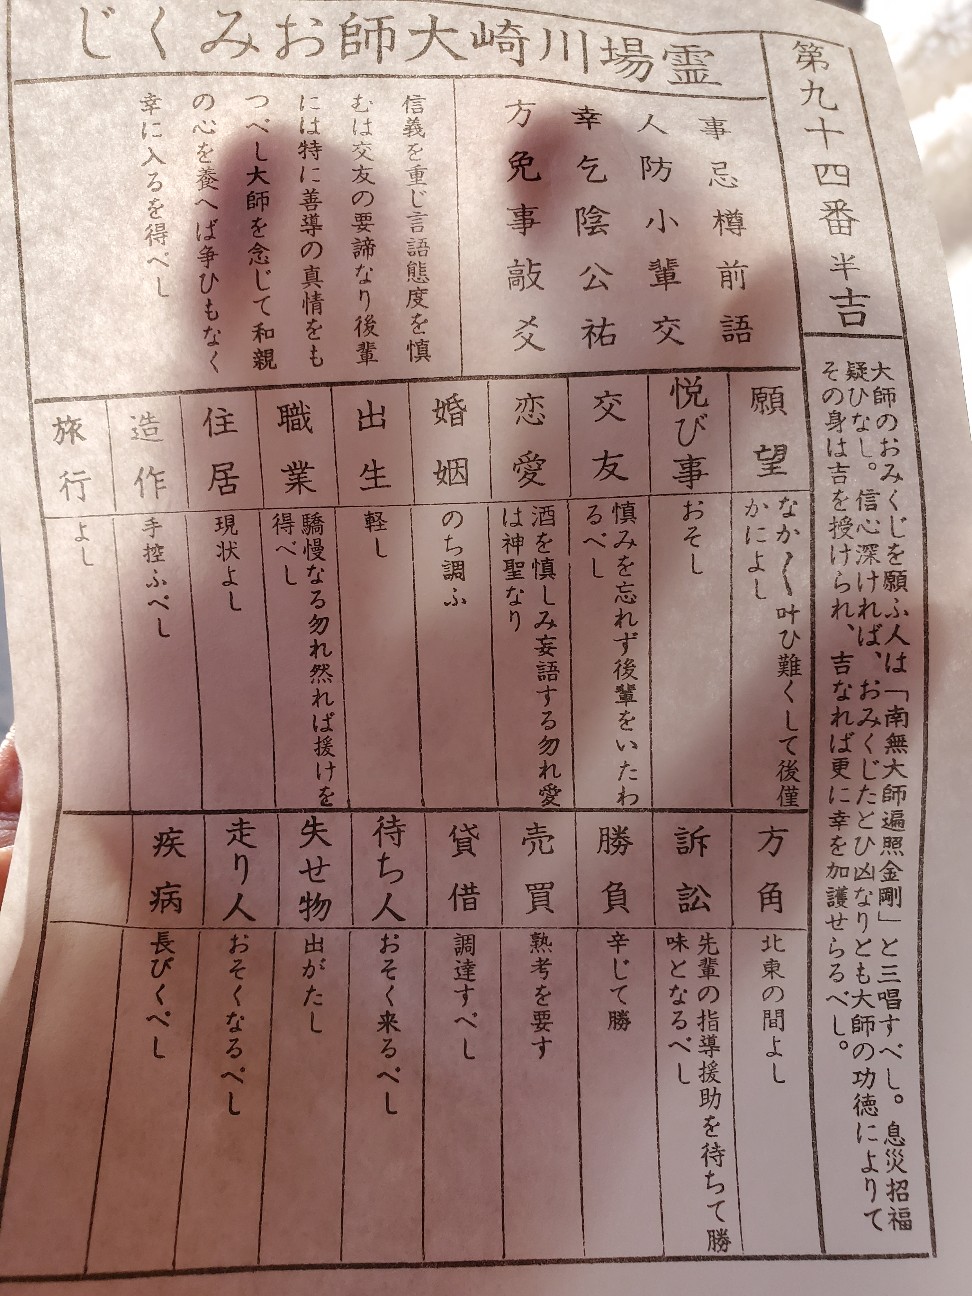 霊場川崎大師おみくじ
第九十四番 半吉
大師のおみくじを願ふ人は「南無大師遍照金剛」と三唱すべし。息災招福
疑ひなし。信心深ければ、おみくじたとひ凶なりとも大師の功徳によりて
その身は吉を授けられ、吉なれば更に幸を加護せらるべし。
事忌樽前語
人防小輩交
幸乞陰公祐
方免事敲爻
信義を重じ言語態度を慎
むは交友の要諦なり後輩
には特に善導の真情をも
つべし大師を念じて和親
の心を養へば争ひもなく
幸に入るを得べし
願望
なか〱叶ひ難くして後僅
かによし
悦び事
おそし
交友
慎みを忘れず後輩をいたわ
るべし
恋愛
酒を慎しみ妄語する勿れ愛
は神聖なり
婚姻
のち調ふ
出生
軽し
職業
驕慢なる勿れ然れば援けを
得べし
住居
現状よし
造作
手控ふべし
旅行
よし
方角
北東の間よし
訴訟
先輩の指導援助を待ちて勝
味となるべし
勝負
辛じて勝
売買
熟考を要す
貸借
調達すべし
待ち人
おそく来るべし
失せ物
出がたし
走り人
おそくなるべし
疾病
長びくべし